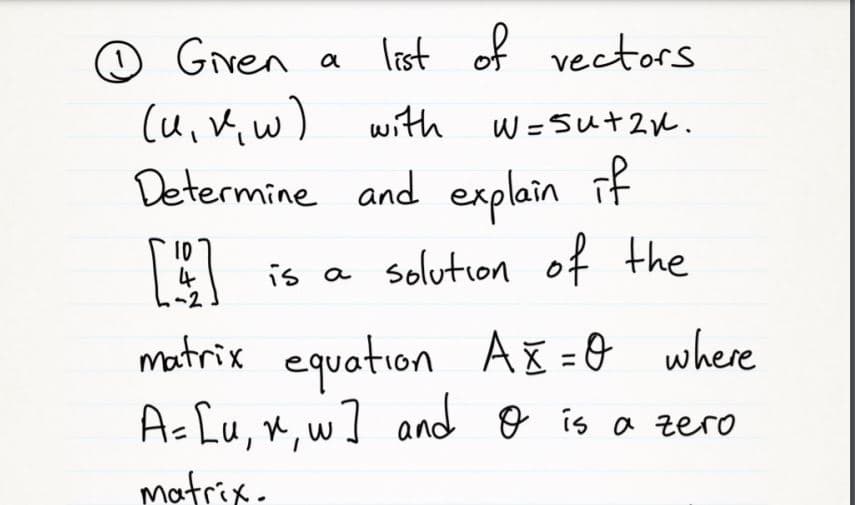 ① Given a list of vectors
(u, v, w) with w=5u+2v.
Determine and explain if
[10 4 -2] is a solution of the
matrix equation Ax̄ = θ where
A=[u, v, w] and θ is a zero
matrix.